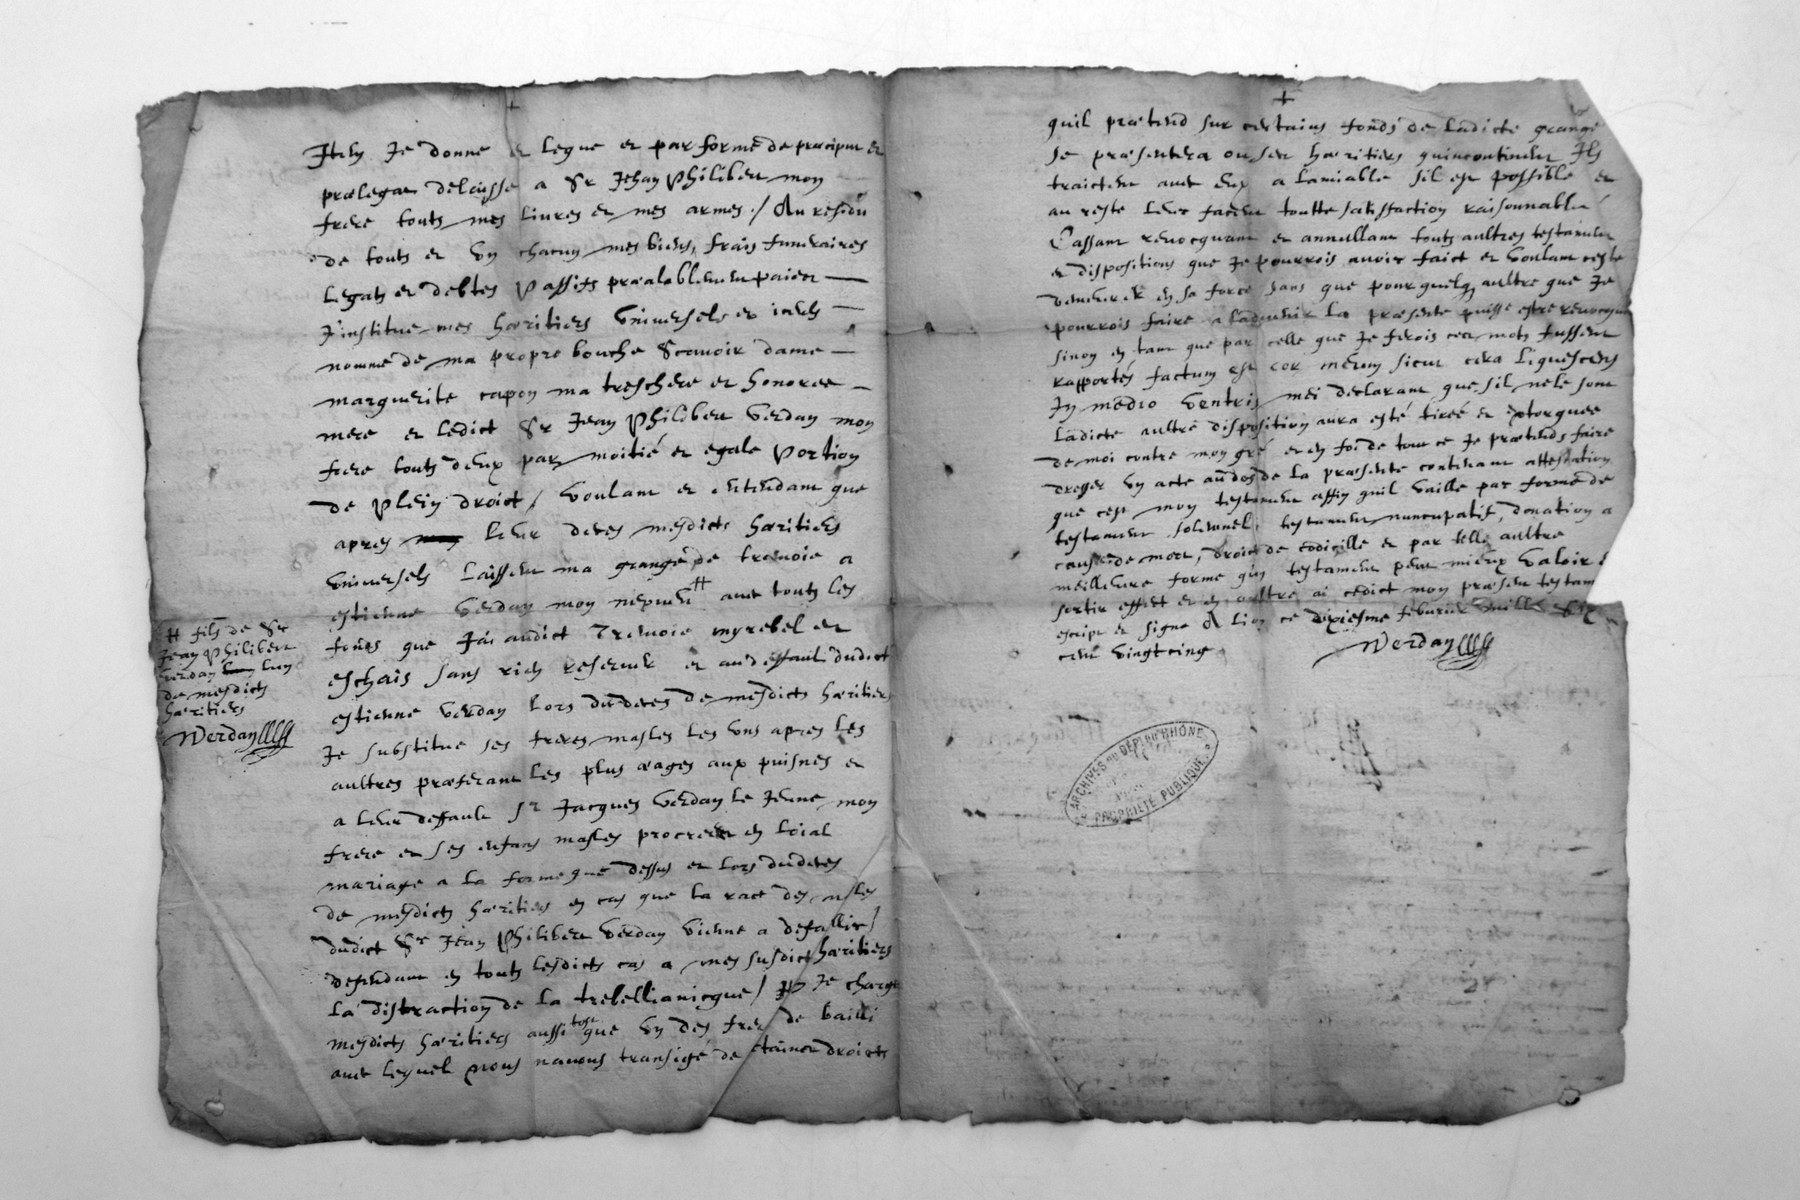 Item Je donne et legue et par forme de præcipu et
prælegat delaisse a Sr Jehan Philibert mon
frere touts mes livres et mes armes ./ Au residu
de touts et un chacun mes biens, frais funeraires
legats et debtes passifs præalablement paiees
J'institue mes hæritiers universels et iceux
nomme de ma propre bouche Scavoir dame
marguerite capon ma treschere et honoree
mere et ledict Sr Jean Philibert Verdan mon
frere touts deux par moitié et egale portion
de plein droict / voulant et entendant que
apres leur deces mesdicts hæritiers
universels laissent ma grange de trenoie a
estienne Verdan mon nepveu # avec touts les
fonds que J'ai audict Trevoie myrebel et
eschais sans rien reserver et au deffault dudict
estienne Verdan lors du deces de mesdicts hæritiers
Je substitue ses freres masles les uns apres les
aultres præferant les plus aages aux puisnes et
a leur deffault Sr Jacques Verdan le Jeune mon
frere et ses enfans masles procreés en loial
mariage a la forme que dessus et lors du deces
de mesdicts hæritiers en cas que la race des masles
dudict Sr Jean Philibert Verdan vienne a defallir /
defendant en touts lesdicts cas a mes susdicts hæritiers
la distraction de la trebellianicque / Je charge
mesdicts hæritiers aussi tost que un des freres de bailli
avec lequel nous navons transigé de certains droicts
# fils de Sr
Jean Philibert
Verdan lun
de mesdicts
hæritiers
Verdan
quil prætend sur certains fonds de ladicte grange
se præsentera ou ses hæritiers quincontinent Ils
traictent avec eux a lamiable sil est possible et
au reste leur facent toutte satisfaction raisonnable
Cassant revocquant et annullant touts aultres testament
et dispositions que Je pourrois avoir faict et voulant ceste
demeurer en sa force sans que pour quelq aultre que Je
pourrois faire a ladvenir la præsente puisse estre revocquee
sinon en tant que par celle que Je ferois ces mots fussent
rapportés factum est cor meum sicut cera liquescens
In medio ventris mei declarant que sil ne le sont
ladicte aultre disposition aura esté tirée et extorquee
de moi contre mon gré et en foi de tout ce Je prætends faire
dresser un acte au dos de la præsente contenant attestation
que cest mon testament affin quil vaille par forme de
testament solennel, testament nuncupatif, donation a
cause de mort, droict de codicille et par telle aultre
meilleure forme qun testament peut mieux valoir &
sortir effect et en oultre ai cedict mon præsent testam
escript et signe A Lion ce dixiesme febvrier mille Six
cent vingt cinq
Verdan
ARCHIVES DU DEPT DU RHÔNE
PROPRIÉTÉ PUBLIQUE